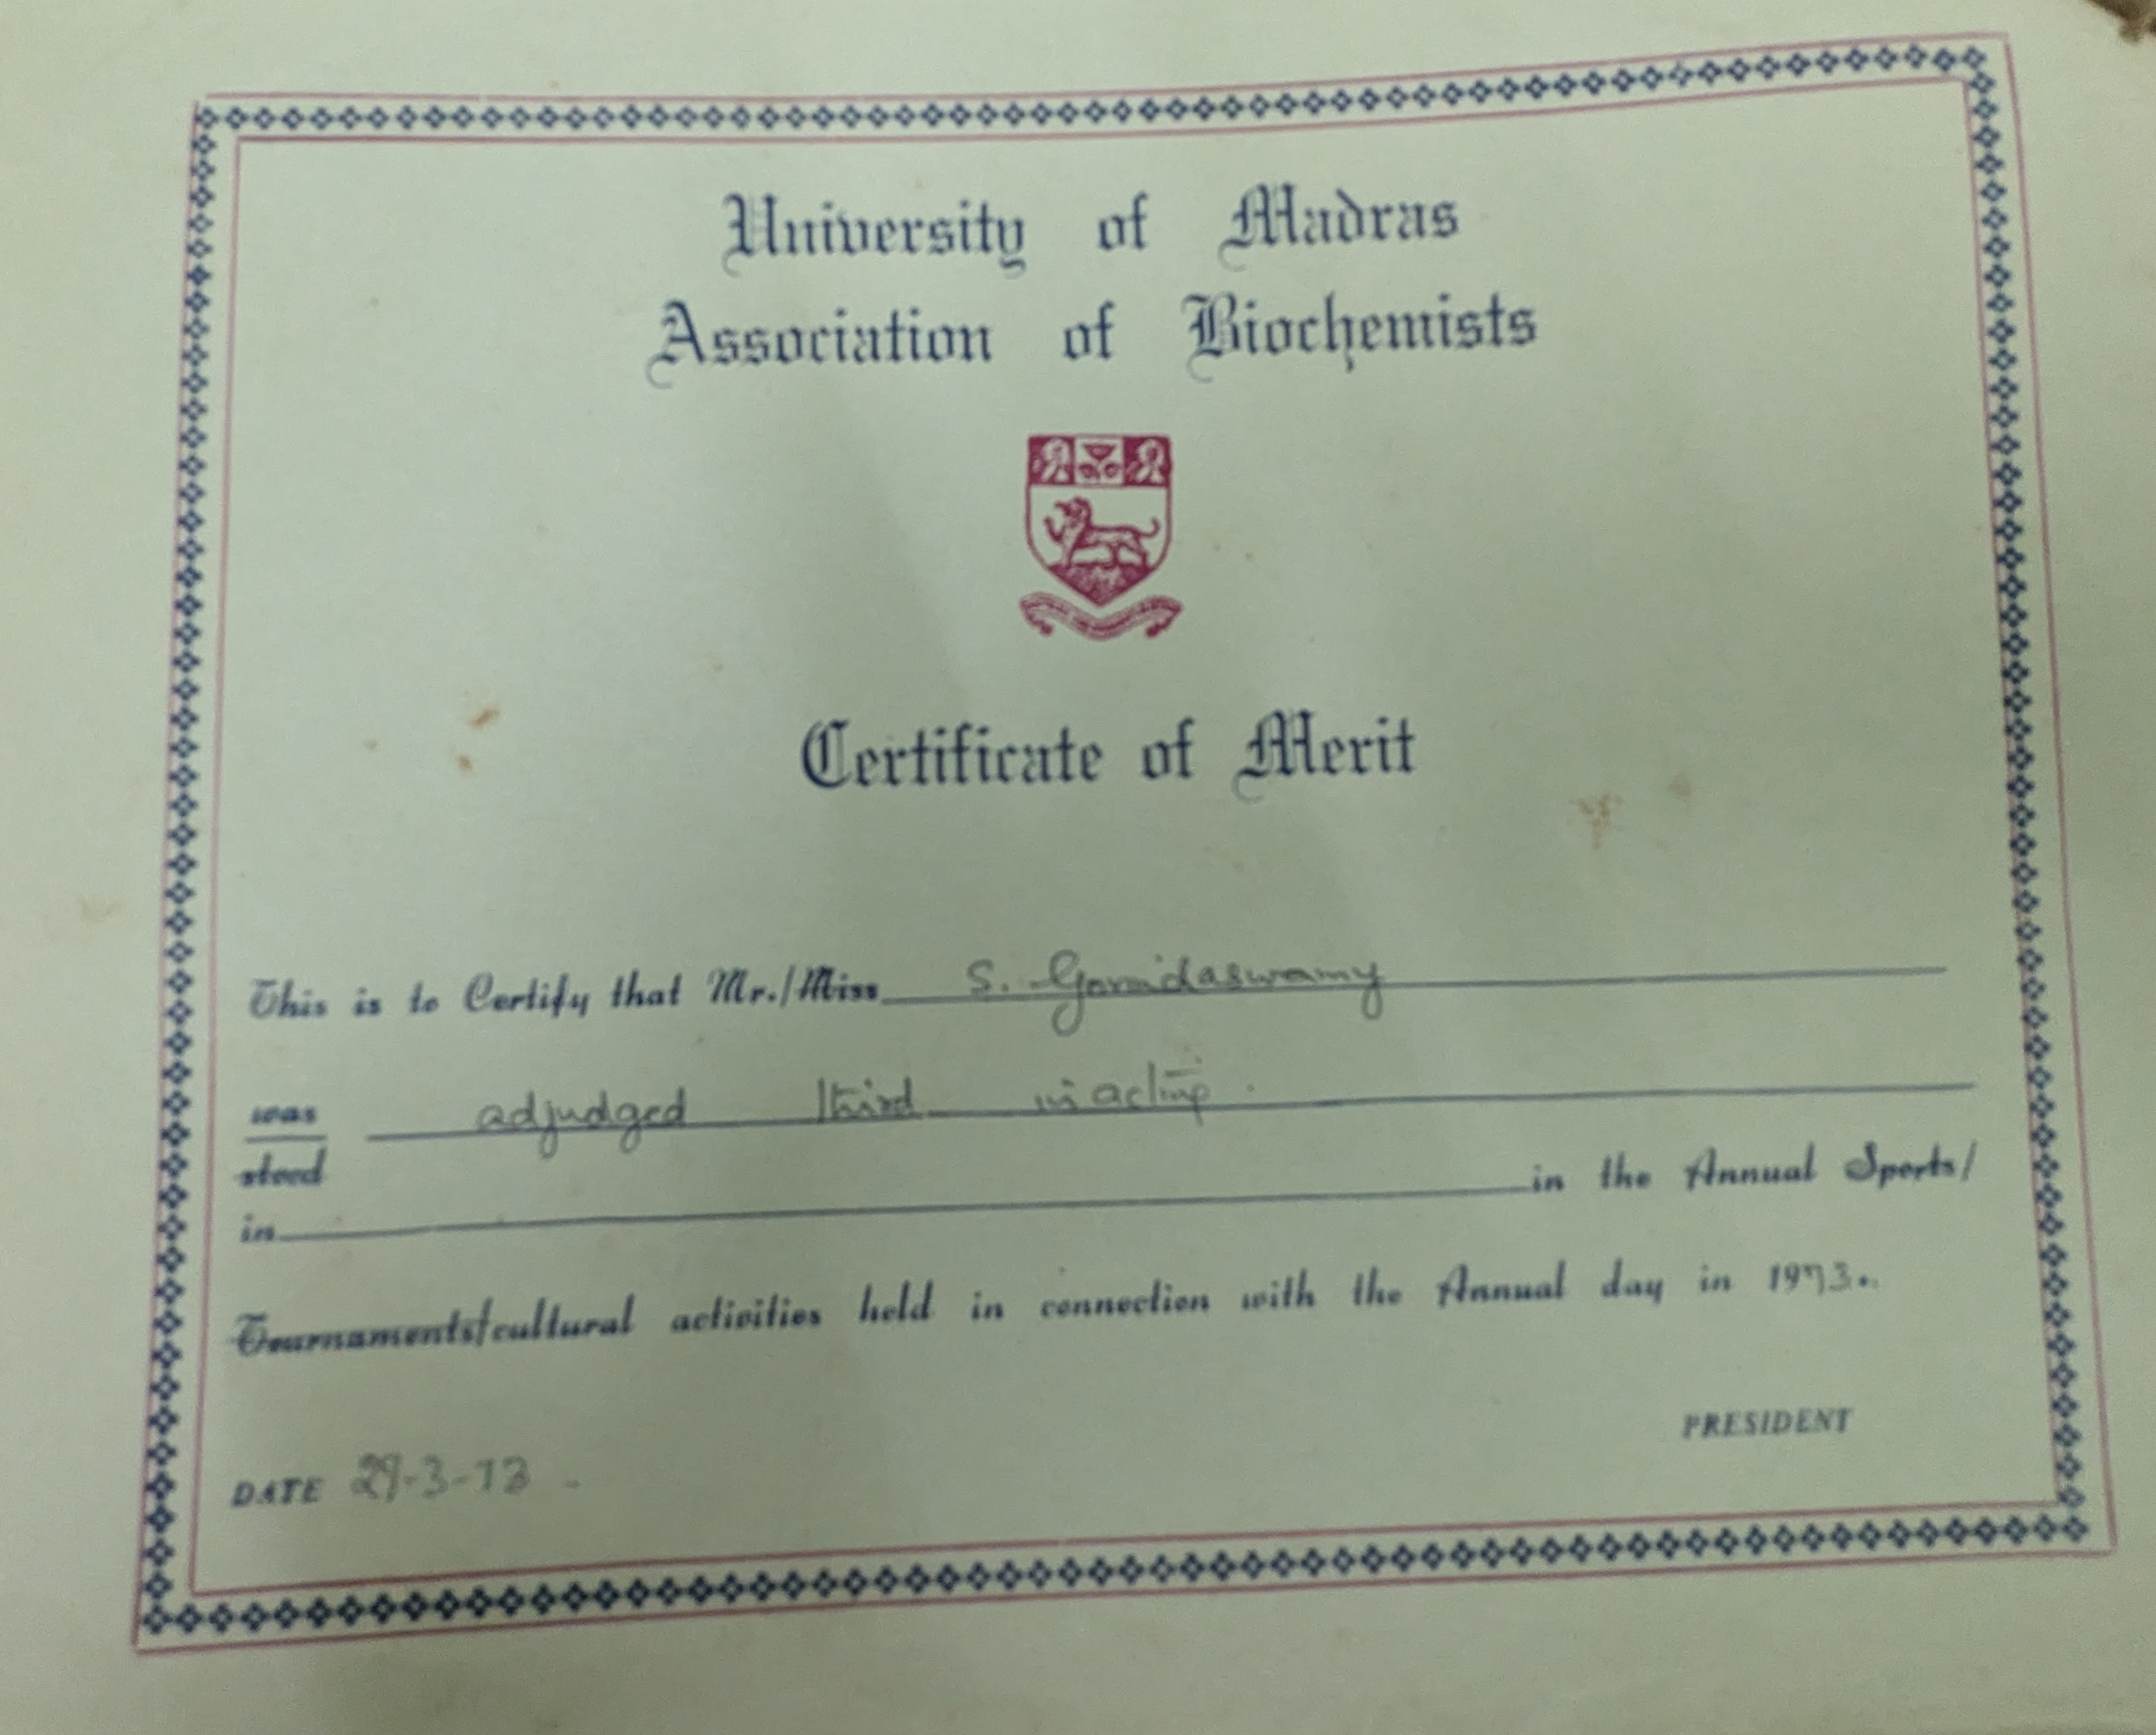 University of Madras
Association of Biochemists
Certificate of Merit
This is to Certify that Mr./Miss S. Govindaswamy
was adjudged third in acting.
stood
in in the Annual Sports/
Tournaments/cultural activities held in connection with the Annual day in 1973.
PRESIDENT
DATE 29-3-73